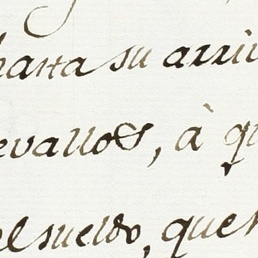 hasta su arri
evallos, à q
el sueldo, que